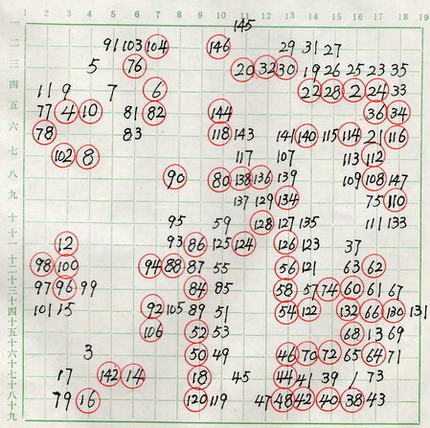 1 2 3 4 5 6 7 8 9 10 11 12 13 14 15 16 17 18 19
一 145
二 91 103 104 146 29 31 27
三 5 76 20 32 30 19 26 25 23 35
四 11 9 7 6 22 28 2 24 33
五 77 4 10 81 82 144 36 34
六 78 83 118 143 141 140 115 114 21 116
七 102 8 117 107 113 112
八 90 80 138 136 139 109 108 147
九 137 129 134 75 110
十 95 59 128 127 135 111 133
十一 12 93 86 125 124 126 123 37
十二 98 100 94 88 87 55 56 121 63 62
十三 97 96 99 84 85 58 57 74 60 61 67
十四 101 15 92 105 89 51 54 122 132 66 130 131
十五 106 52 53 68 13 69
十六 3 50 49 46 70 72 65 64 71
十七 17 142 14 18 45 44 41 39 1 73
十八 79 16 120 119 47 48 42 40 38 43
十九